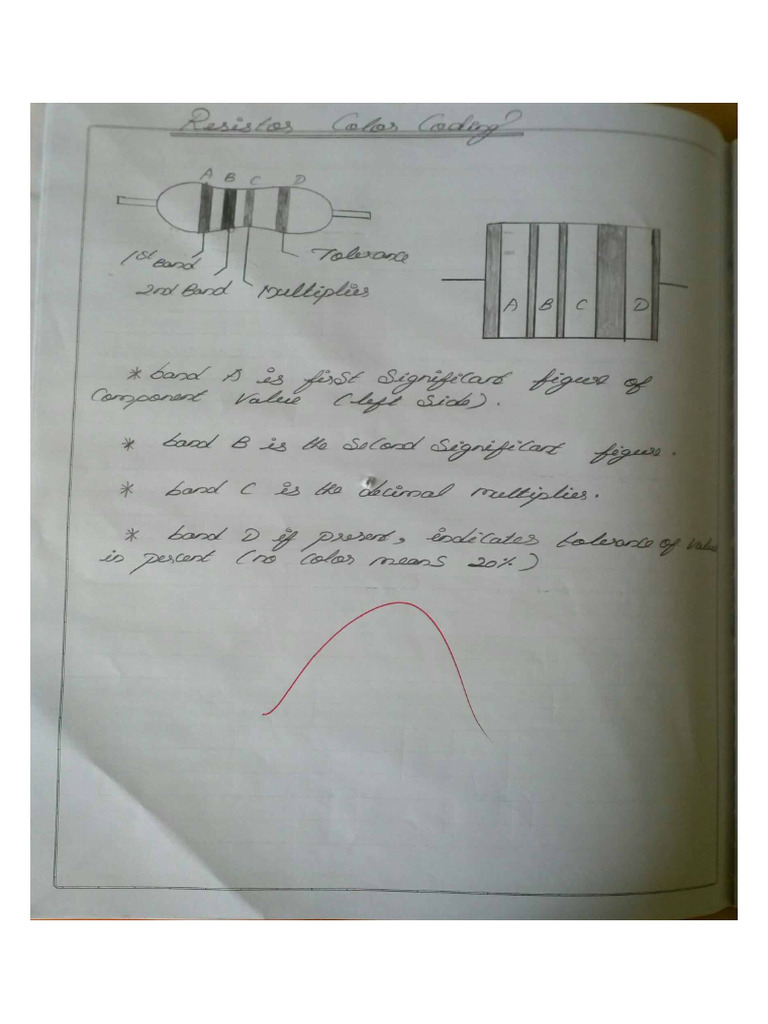 Resistor Color Coding?
A B C D
1st Band
Tolerance
2nd Band
Multiplier
A B C D
* band A is first significant figure of
component value (left side).
* band B is the second significant figure.
* band C is the decimal multiplier.
* band D if present, indicates tolerance of value
in percent (no color means 20%)